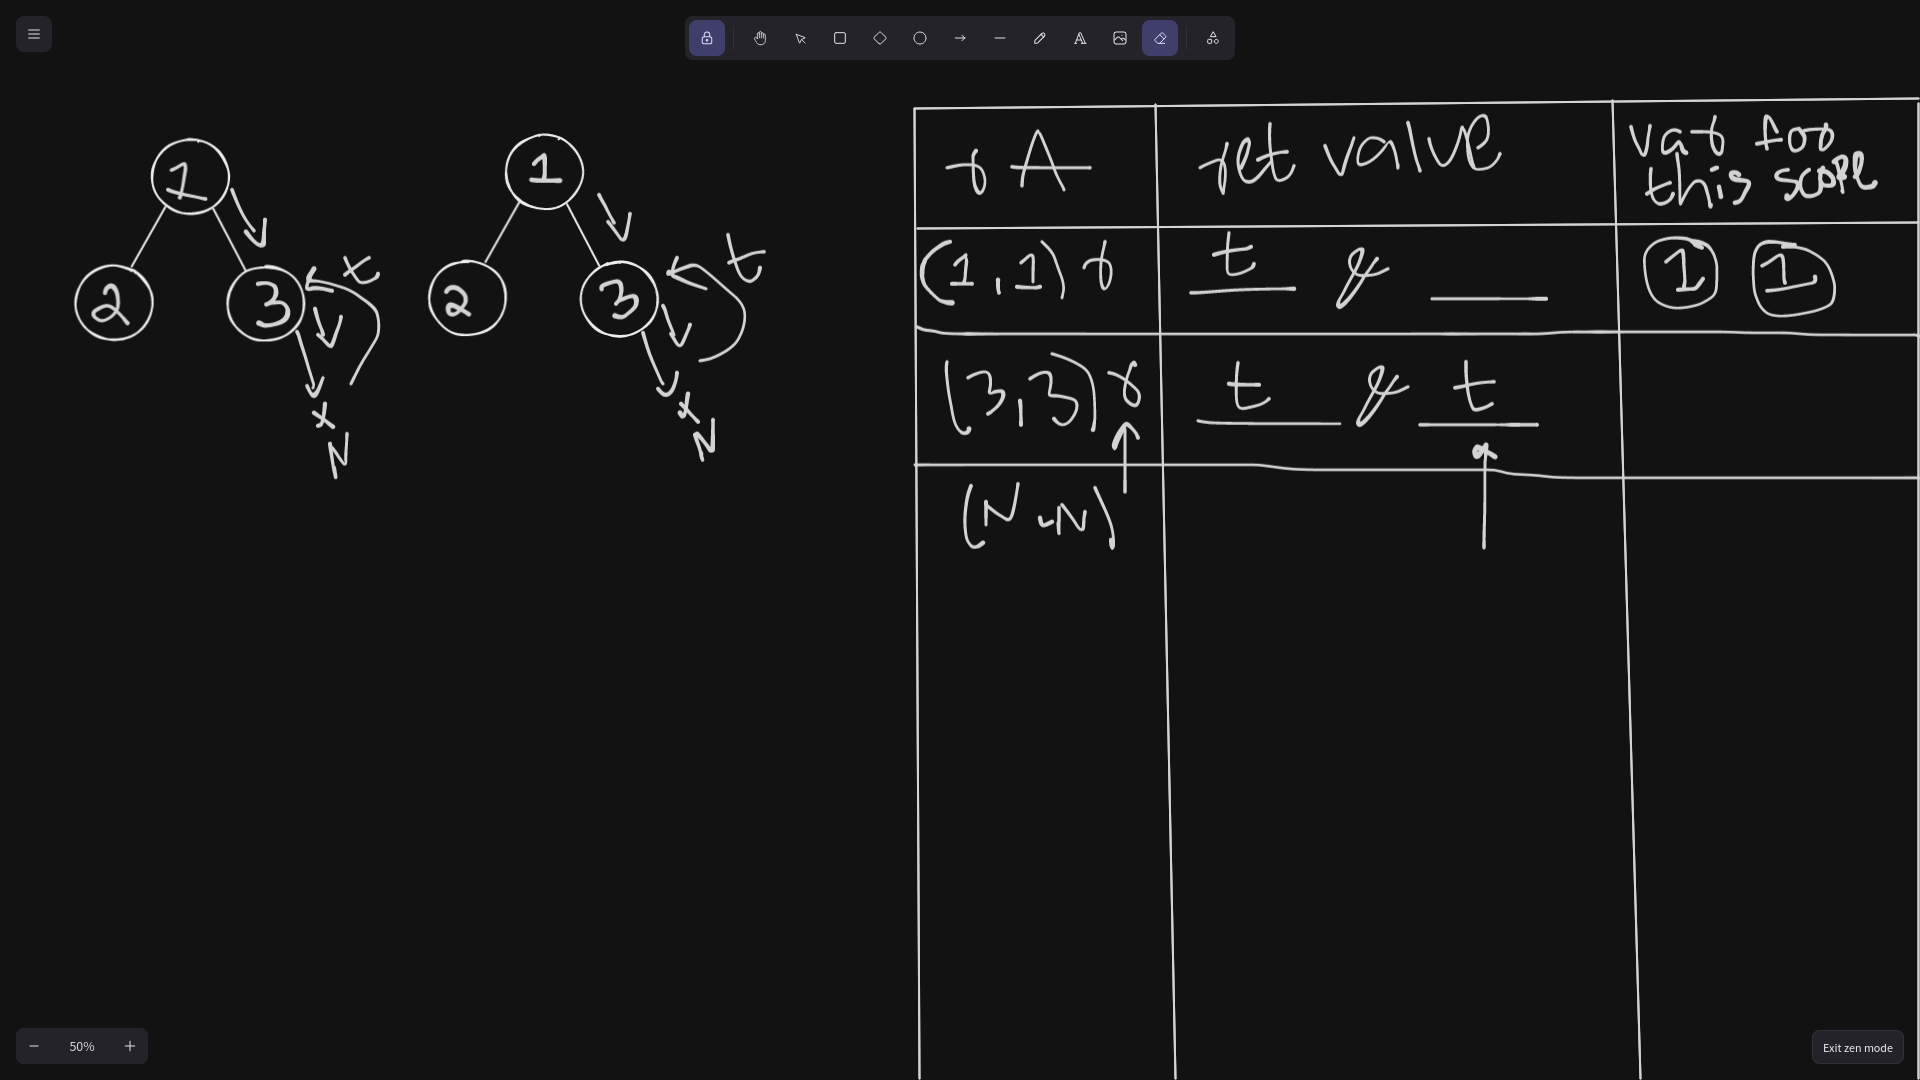 1
2
3
t
N
1
2
3
t
N
r A
ret value
var for
this scope
(1,1) r
t & __
1 1
(3,3) r
t & t
(N,N)
50%
Exit zen mode